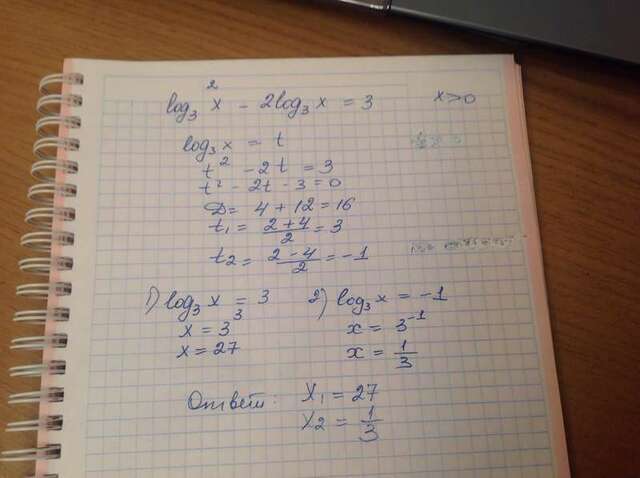 log₃² x - 2log₃ x = 3 x > 0
log₃ x = t
t² - 2t = 3
t² - 2t - 3 = 0
D = 4 + 12 = 16
t₁ = (2+4)/2 = 3
t₂ = (2-4)/2 = -1
1) log₃ x = 3 2) log₃ x = -1
x = 3³ x = 3⁻¹
x = 27 x = 1/3
Ответ: x₁ = 27
x₂ = 1/3